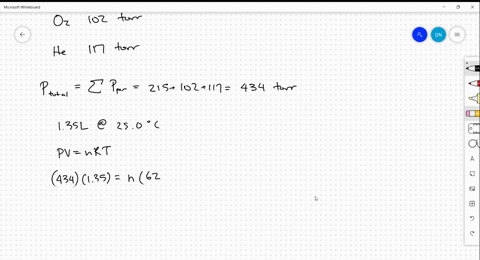 Microsoft Whiteboard
O₂ 102 torr
DN
He 117 torr
P total = ∑ P par = 215+102+117= 434 torr
1.35L @ 25.0°C
PV=nRT
(434)(1.35) = n(62